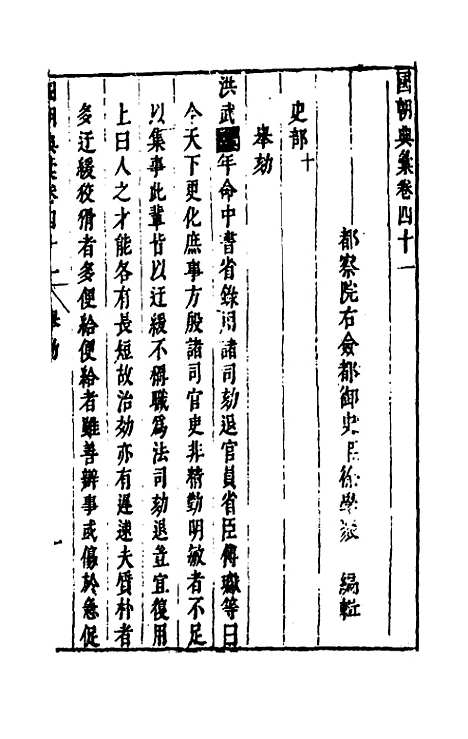 國朝典彙卷四十一
都察院右僉都御史臣徐學聚 編輯
吏部十
舉劾
洪武年命中書省錄用諸司劾退官員省臣傅瓛等曰
今天下更化庶事方殷諸司官吏非精勤明敏者不足
以集事此輩皆以迂緩不稱職爲法司劾退豈宜復用
上曰人之才能各有長短故治効亦有遲速夫質朴者
多迂緩狡猾者多便給便給者雖善辦事或傷於急促
國朝典彙卷四十一 舉劾 一